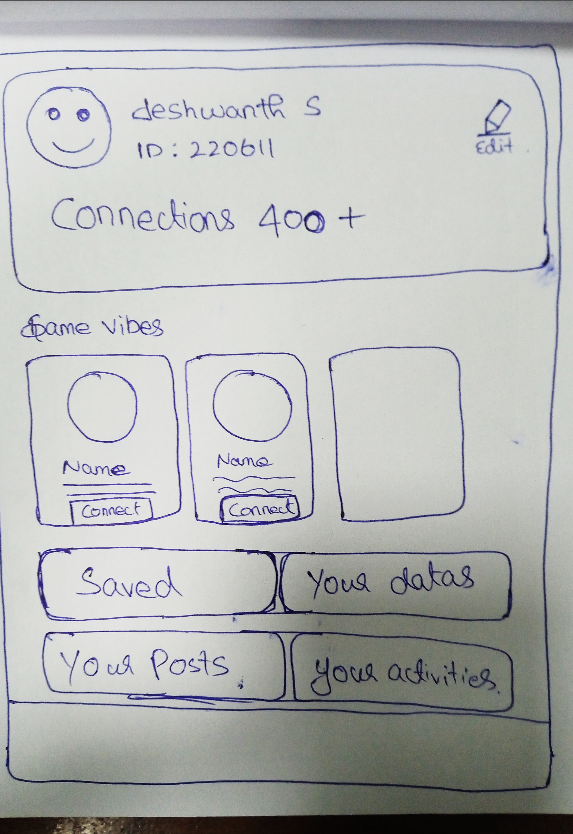 deshwanth S
ID : 220611
Edit
Connections 400 +
Same vibes
Name
Connect
Name
Connect
Saved
Your datas
Your Posts
Your activities.